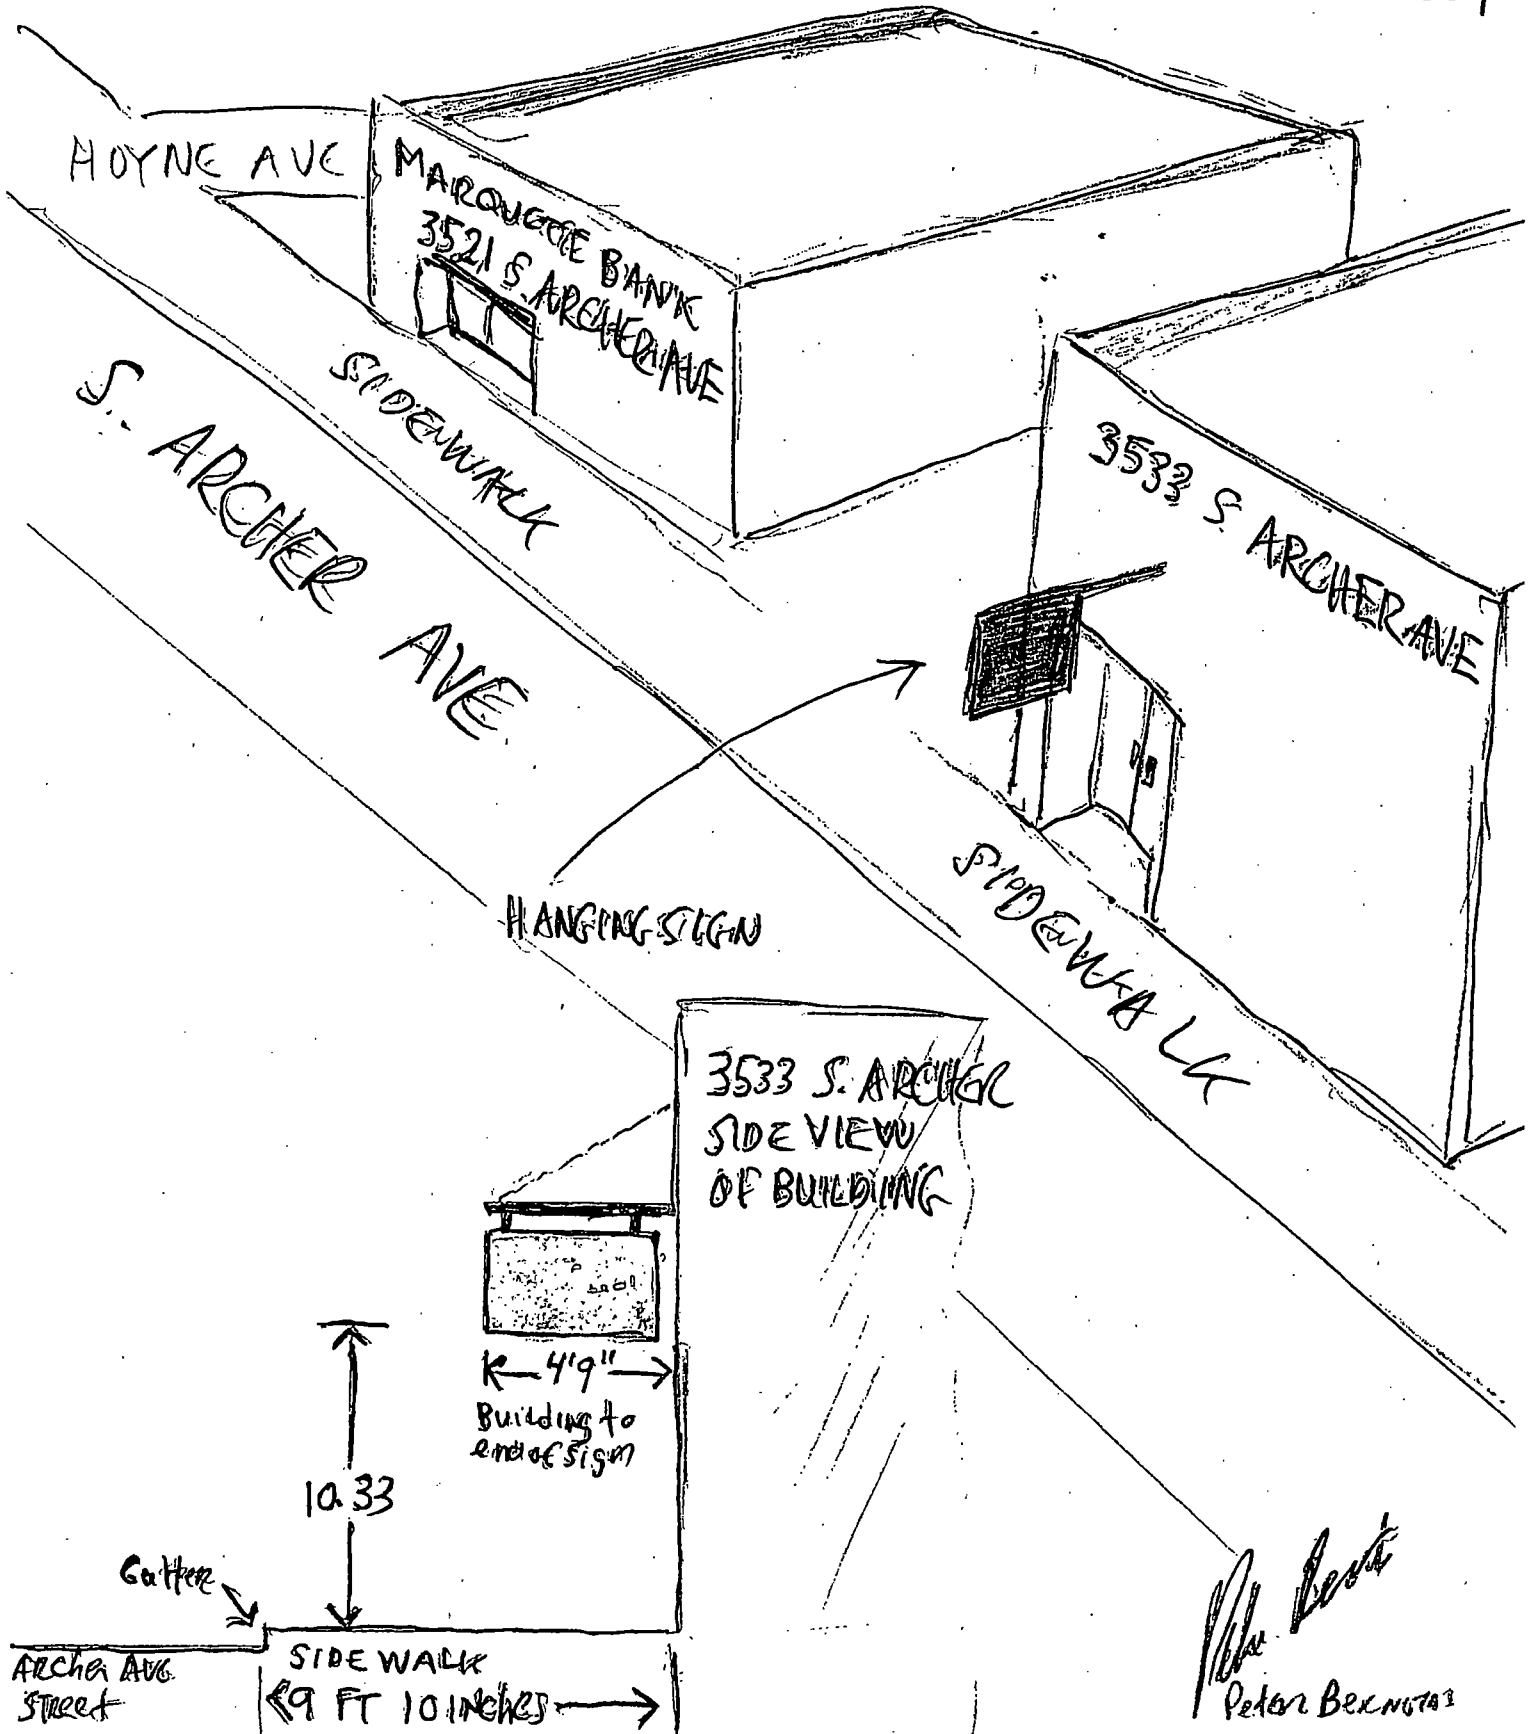 HOYNE AVE
MARQUETTE BANK
3521 S. ARCHER AVE
S. ARCHER AVE
SIDEWALK
3533 S. ARCHER AVE
HANGING SIGN
SIDEWALK
3533 S. ARCHER
SIDE VIEW
OF BUILDING
4'9"
Building to
end of sign
10.33
Gutter
ARCHER AVE
STREET
SIDEWALK
9 FT 10 INCHES
Peter